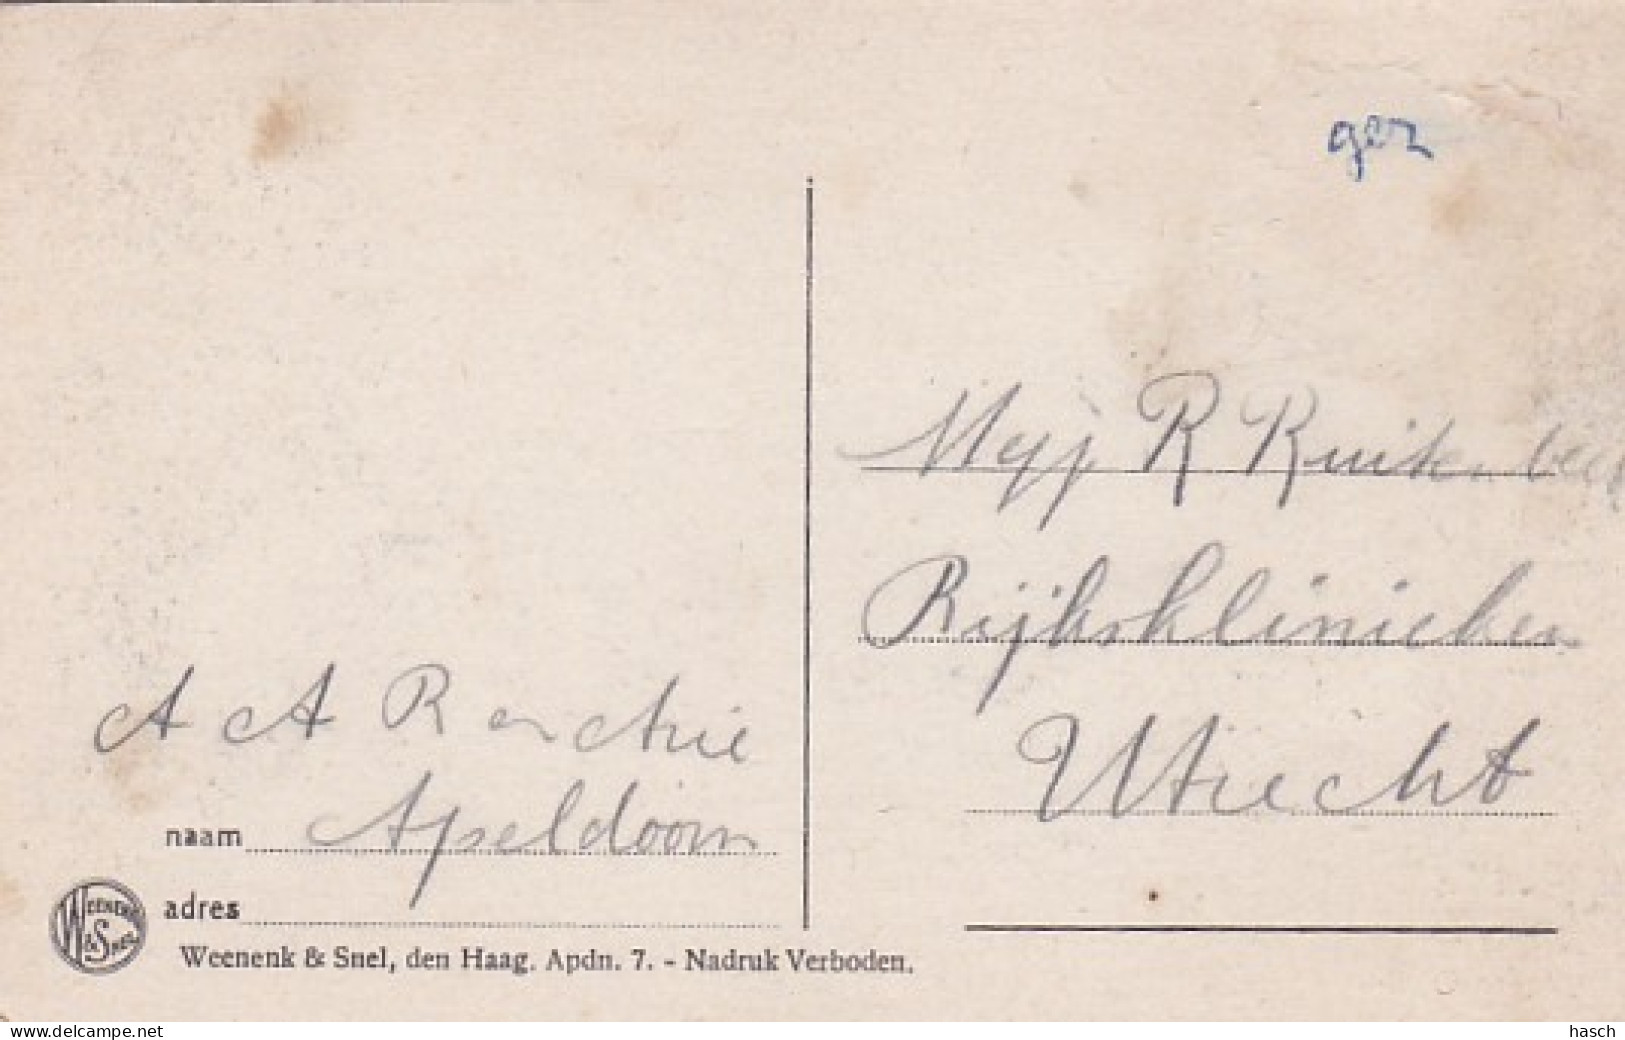 gez
Mejj R Ruitenbeek
Rijksklinieken
Utrecht
A A R en Arie
Apeldoorn
naam
adres
WEENENK & SNEL
Weenenk & Snel, den Haag. Apdn. 7. - Nadruk Verboden.
www.delcampe.net
hasch